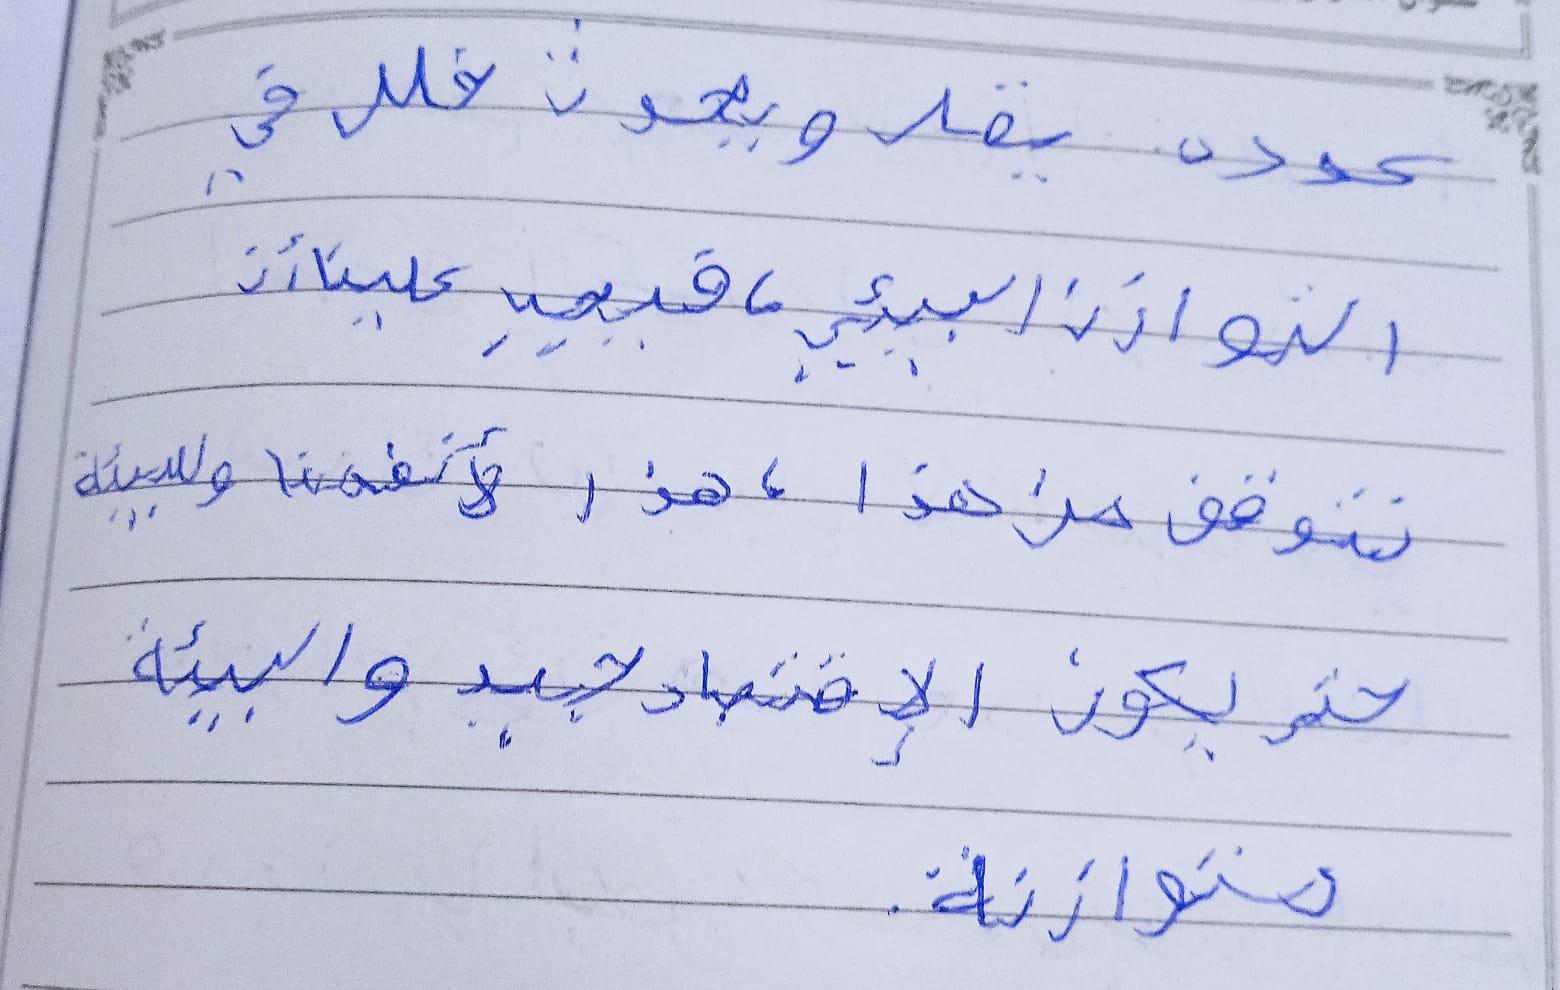 عددن يقل ويحدث خلل في
التوازن البيئي، فيجب علينا أن
نتوقف من هذا، هذا لأنفسنا وللبيئة
حتى يكون الإقتصاد جيد والبيئة
متوازنة.